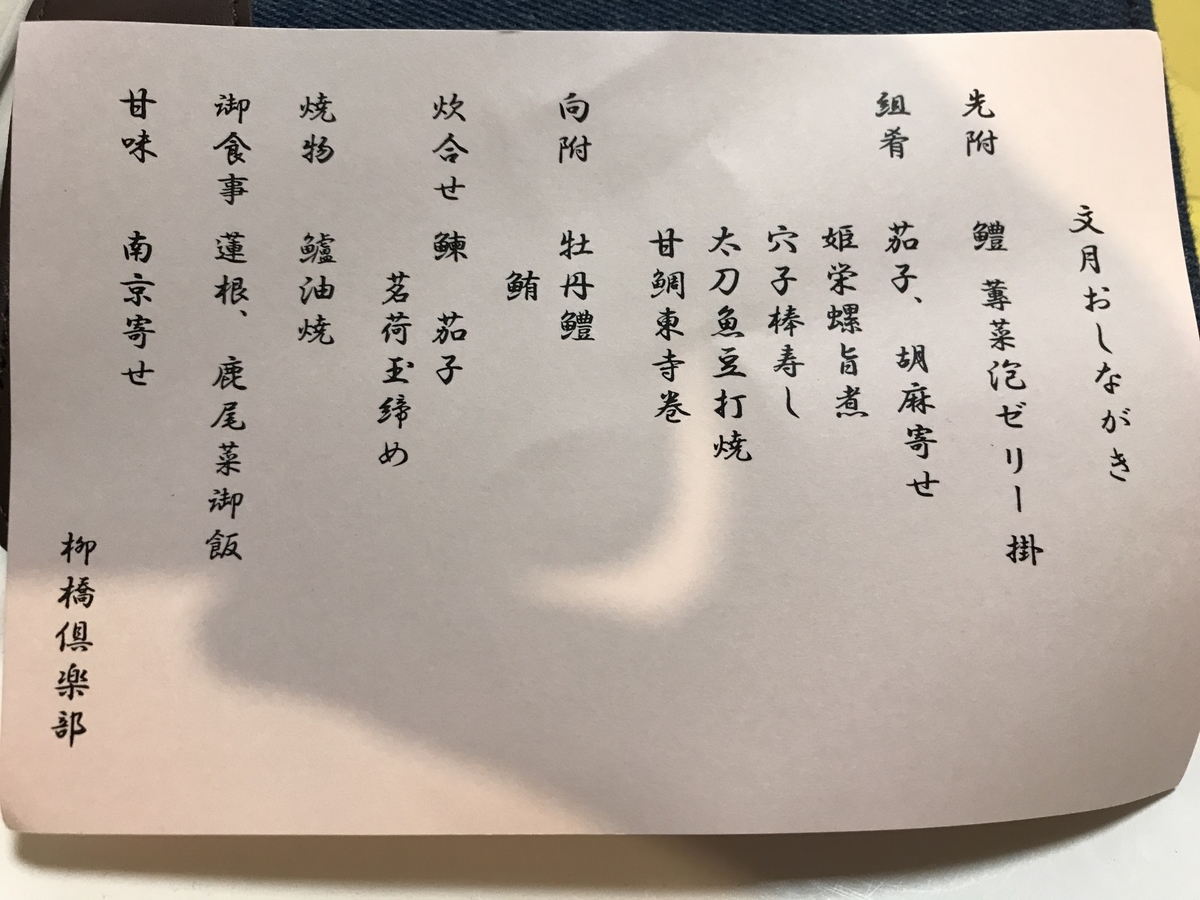 文月おしながき
先附 鱧 蓴菜泡ゼリー掛
組肴 茄子、胡麻寄せ
姫栄螺旨煮
穴子棒寿し
太刀魚豆打焼
甘鯛東寺巻
向附 牡丹鱧
鮪
炊合せ 鰊 茄子
茗荷玉締め
焼物 鱸油焼
御食事 蓮根、鹿尾菜御飯
甘味 南京寄せ
柳橋倶楽部